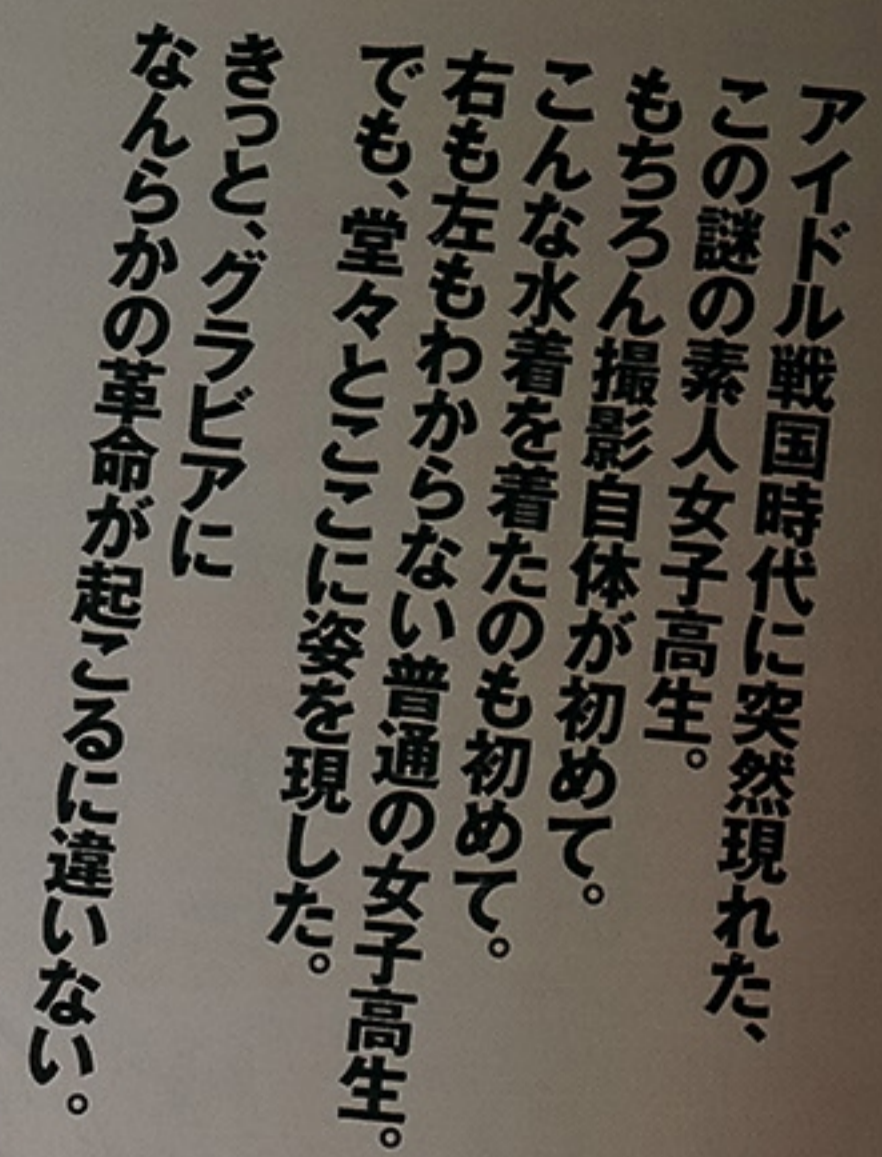 アイドル戦国時代に突然現れた、
この謎の素人女子高生。
もちろん撮影自体が初めて。
こんな水着を着たのも初めて。
右も左もわからない普通の女子高生。
でも、堂々とここに姿を現した。
きっと、グラビアに
なんらかの革命が起こるに違いない。